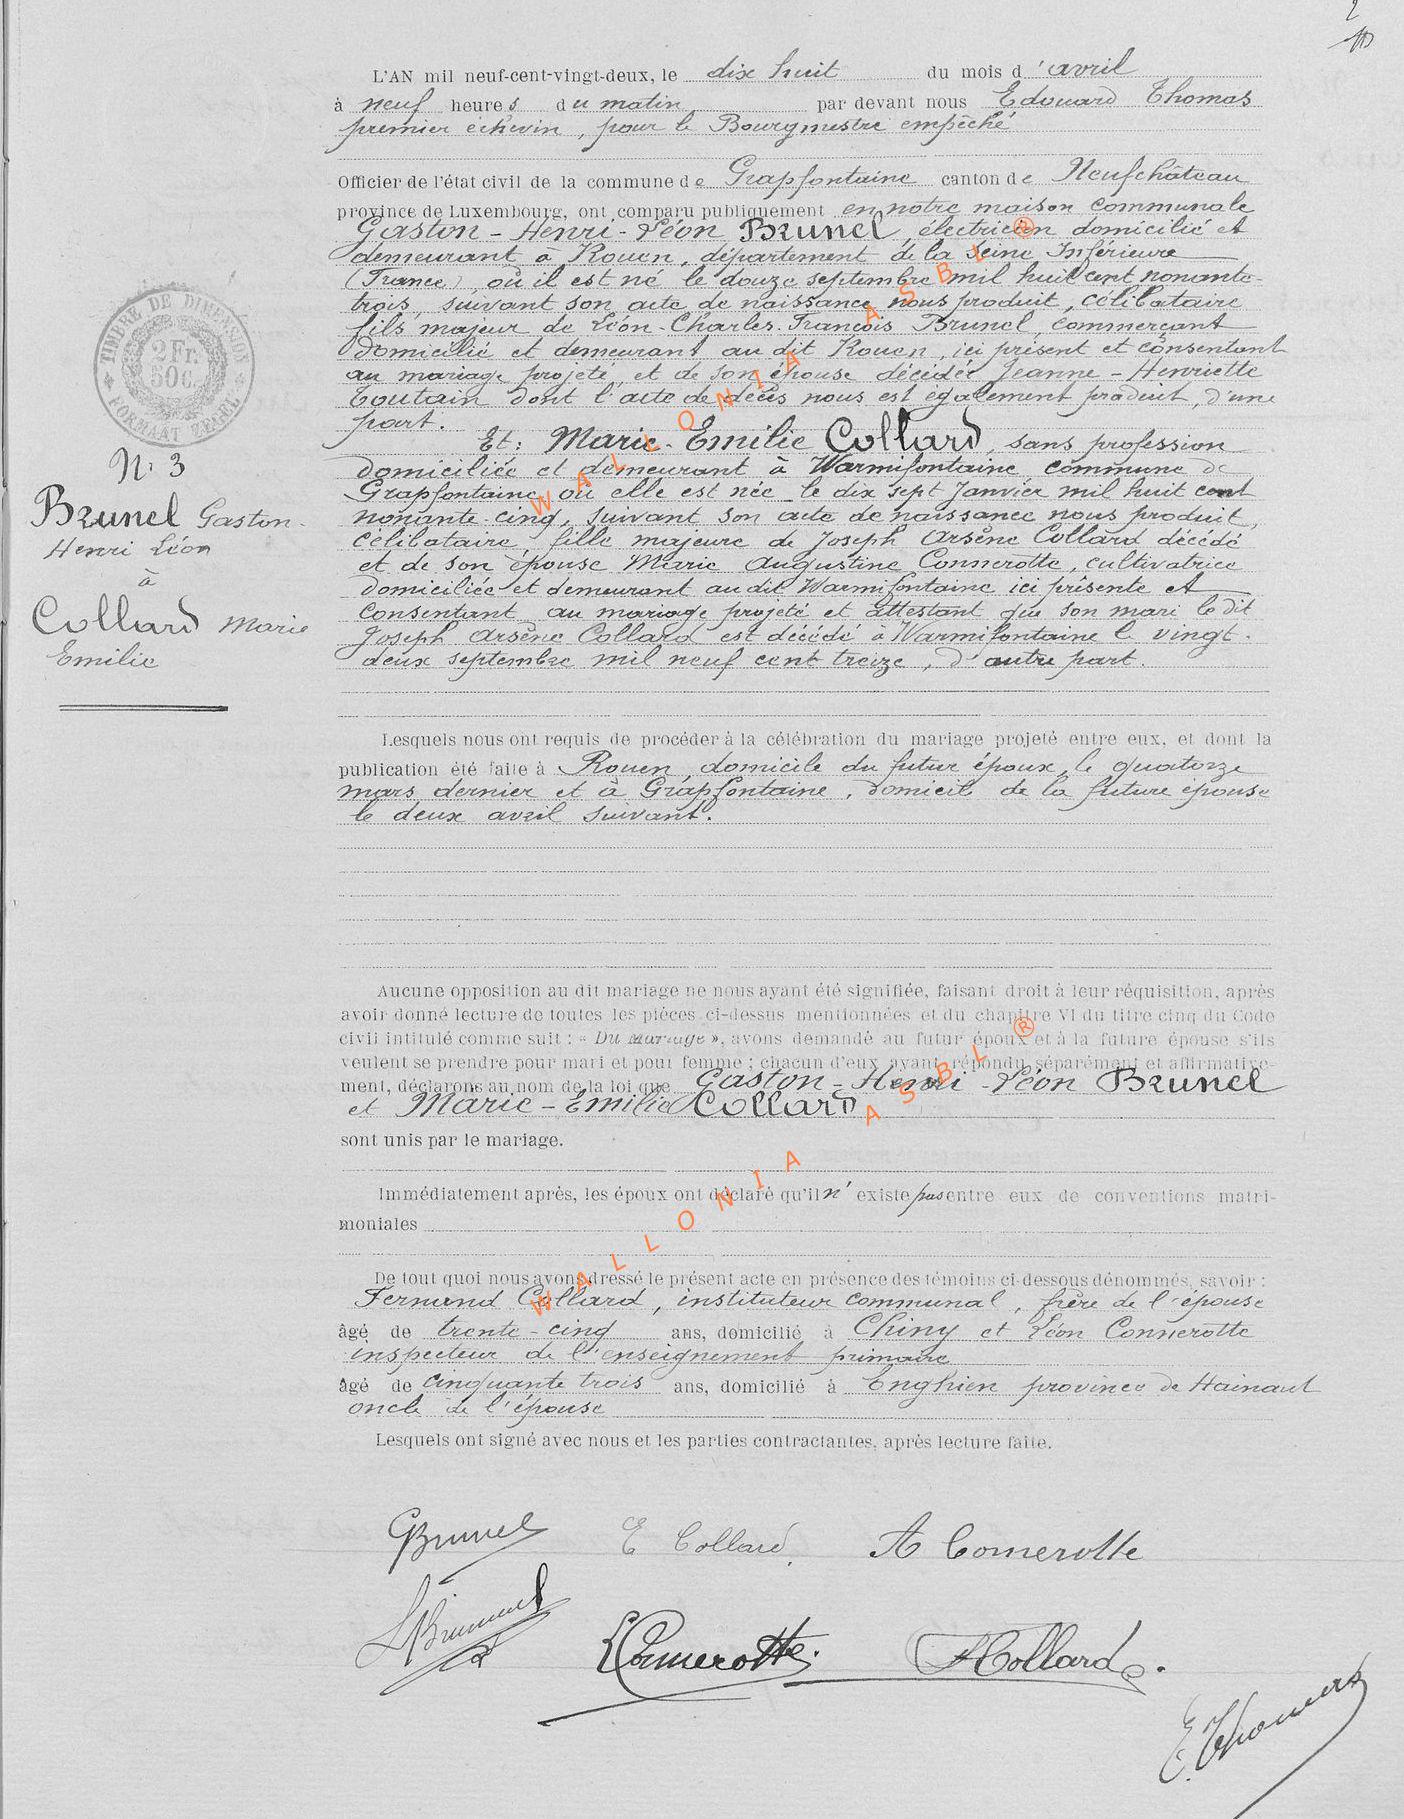 2
L'AN mil neuf-cent-vingt-deux, le dix huit du mois d'avril
à neuf heures du matin par devant nous Edouard Thomas
premier échevin, pour le Bourgmestre empêché
Officier de l'état civil de la commune de Grapfontaine canton de Neufchâteau
province de Luxembourg, ont comparu publiquement en notre maison communale
Gaston-Henri-Léon Brunel, électricien domicilié et
demeurant à Rouen, département de la Seine Inférieure
(France), où il est né le douze septembre mil huit cent nonante-
trois, suivant son acte de naissance nous produit, célibataire
fils majeur de Léon-Charles-François Brunel, commerçant
domicilié et demeurant au dit Rouen, ici présent et consentant
au mariage projeté, et de son épouse décédée Jeanne-Henriette
Coutain dont l'acte de décès nous est également produit, d'une
part.
Et: Marie-Emilie Collard, sans profession
domiciliée et demeurant à Warmifontaine commune de
Grapfontaine où elle est née le dix sept Janvier mil huit cent
nonante-cinq, suivant son acte de naissance nous produit,
célibataire fille majeure de Joseph Arsène Collard décédé
et de son épouse Marie Augustine Connerotte, cultivatrice
domiciliée et demeurant au dit Warmifontaine ici présente et
consentant au mariage projeté et attestant que son mari le dit
Joseph Arsène Collard est décédé à Warmifontaine le vingt-
deux septembre mil neuf cent treize, d'autre part.
TIMBRE DE DIMENSION
2 Fr.
50 C.
FORMAAT ZEGEL
N° 3
Brunel Gaston-
Henri Léon
à
Collard Marie
Emilie
Lesquels nous ont requis de procéder à la célébration du mariage projeté entre eux, et dont la
publication été faite à Rouen, domicile du futur époux, le quatorze
mars dernier et à Grapfontaine, domicile de la future épouse
le deux avril suivant.
Aucune opposition au dit mariage ne nous ayant été signifiée, faisant droit à leur réquisition, après
avoir donné lecture de toutes les pièces ci-dessus mentionnées et du chapitre VI du titre cinq du Code
civil intitulé comme suit : « Du Mariage », avons demandé au futur époux et à la future épouse s'ils
veulent se prendre pour mari et pour femme ; chacun d'eux ayant répondu séparément et affirmative-
ment, déclarons au nom de la loi que Gaston-Henri-Léon Brunel
et Marie-Émilie Collard
sont unis par le mariage.
Immédiatement après, les époux ont déclaré qu'il n'existe pas entre eux de conventions matri-
moniales
De tout quoi nous avons dressé le présent acte en présence des témoins ci-dessous dénommés, savoir :
Fernand Collard, instituteur communal, frère de l'épouse
âgé de trente-cinq ans, domicilié à Chiny et Léon Connerotte
inspecteur de l'enseignement primaire
âgé de cinquante trois ans, domicilié à Enghien province de Hainaut
oncle de l'épouse
Lesquels ont signé avec nous et les parties contractantes, après lecture faite.
GBrunel E Collard. A Connerotte
LBrunel LConnerotte. FCollard.
E. Thomas
WALLONIA ASBL ®
WALLONIA ASBL ®